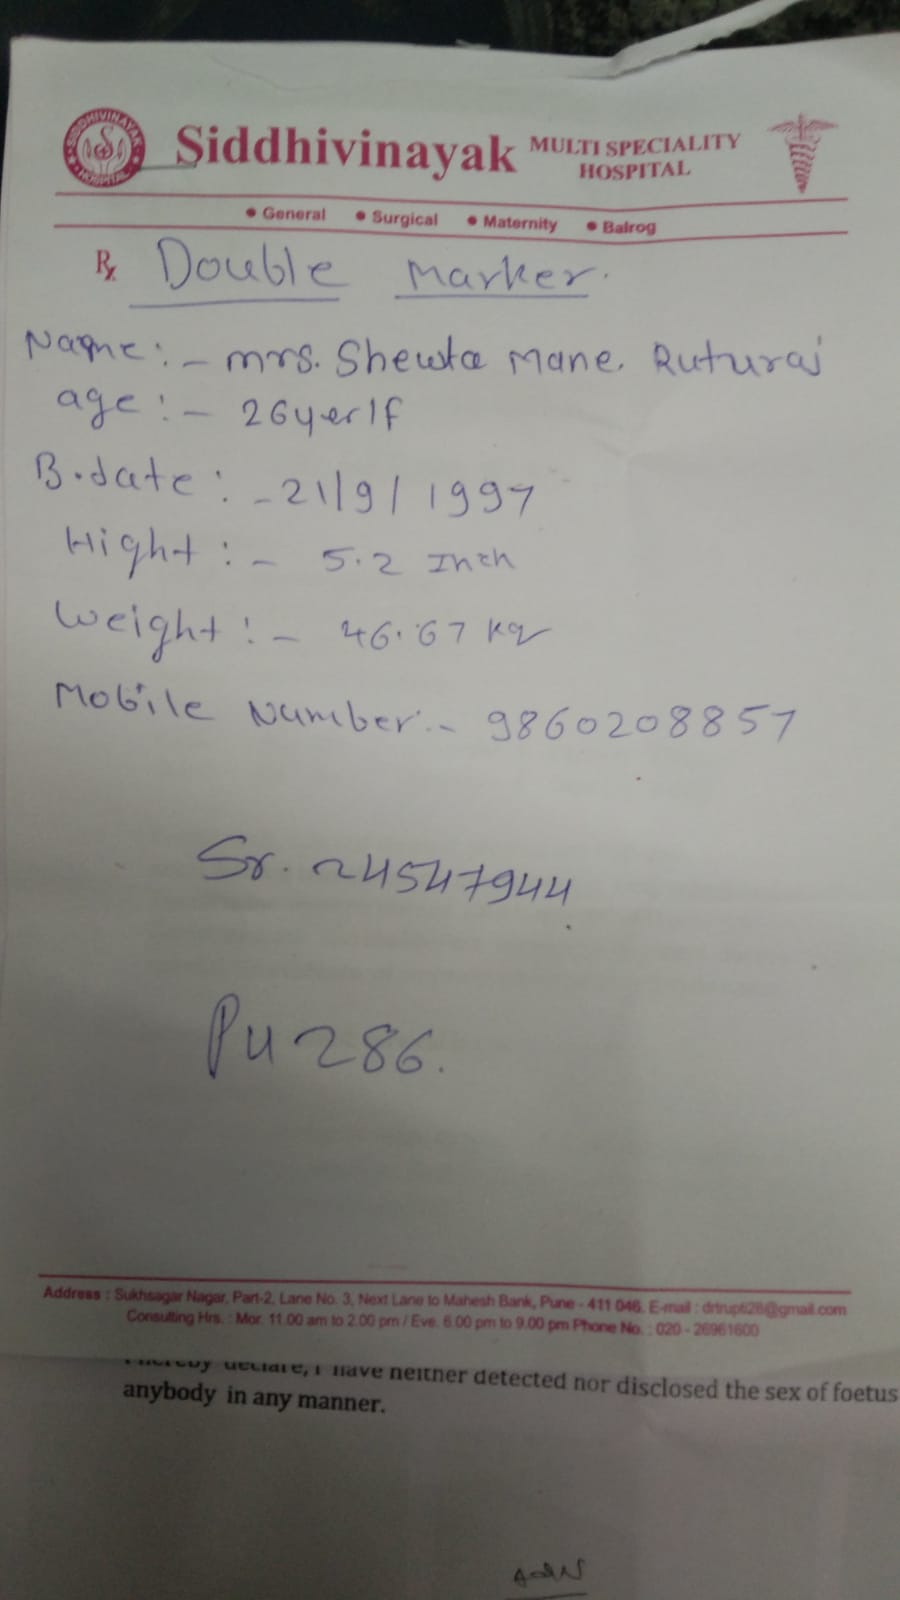 SIDDHIVINAYAK HOSPITAL
Siddhivinayak MULTI SPECIALITY HOSPITAL
• General • Surgical • Maternity • Balrog
Rx Double Marker.
Name :- mrs. Shewta Mane. Ruturaj
age :- 26yer/f
B.date : - 21/9/1997
Hight :- 5.2 Inch
Weight :- 46.67 kg
Mobile Number :- 9860208857
Sr. 24547944
PU286.
Address : Sukhsagar Nagar, Part-2, Lane No. 3, Next Lane to Mahesh Bank, Pune - 411 046. E-mail : drtrupti28@gmail.com
Consulting Hrs. : Mor. 11.00 am to 2.00 pm / Eve. 6.00 pm to 9.00 pm Phone No. : 020 - 26961600
I hereby declare, I have neither detected nor disclosed the sex of foetus
anybody in any manner.